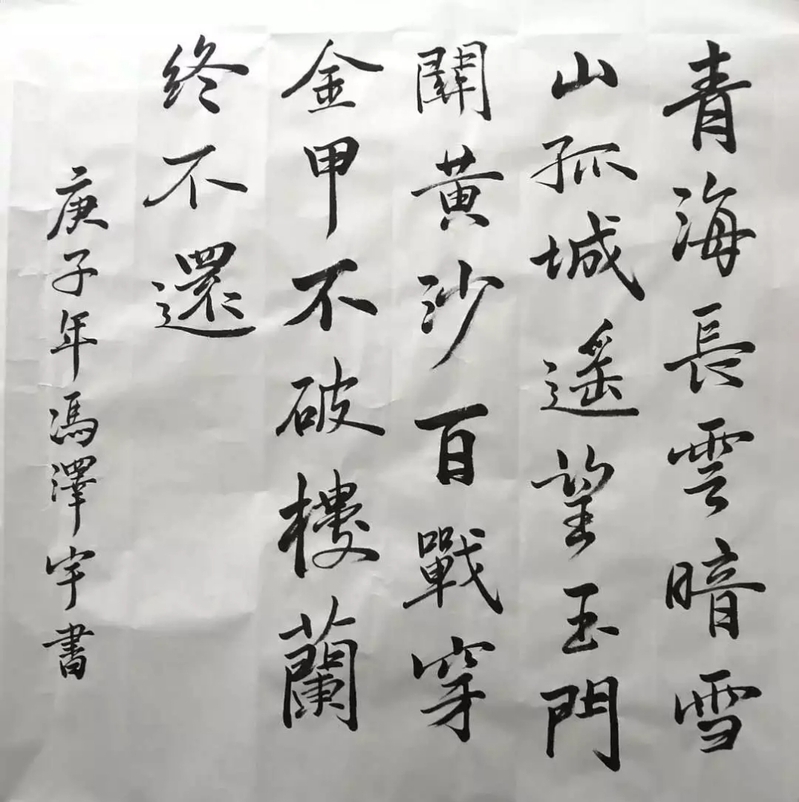 青海長雲暗雪
山孤城遥望玉門
關黄沙百戰穿
金甲不破樓蘭
終不還
庚子年馮澤宇書